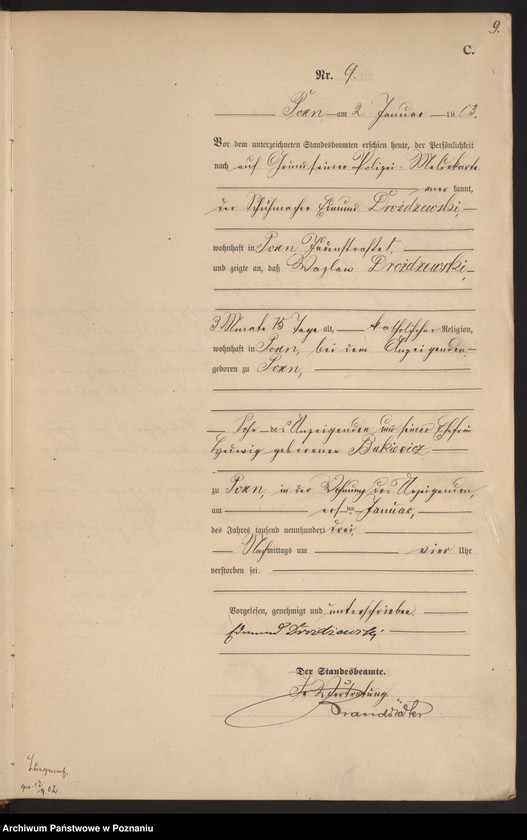 9.
C.
Nr. 9.
Posen am 2 Januar 1903.
Vor dem unterzeichneten Standesbeamten erschien heute, der Persönlichkeit
nach auf Grund seiner Polizei-Meldekarte
aner kannt,
der Schuhmacher Edmund Drożdzewski,
wohnhaft in Posen
und zeigte an, daß Wazlaw Drożdzewski,
3 Monate 15 Tage alt, katholischer Religion,
wohnhaft in Posen, bei dem Anzeigenden
geboren zu Posen,
Sohn des Anzeigenden und seiner Ehefrau
Hedwig geborenen Bukiewicz
zu Posen, in der Wohnung des Anzeigenden,
am ersten Januar,
des Jahres tausend neunhundert drei,
Nachmittags um vier Uhr
verstorben sei.
Vorgelesen, genehmigt und unterschrieben.
Edmund Drożdżewski
Der Standesbeamte.
In Vertretung.
Brandstädter
Archiwum Państwowe w Poznaniu